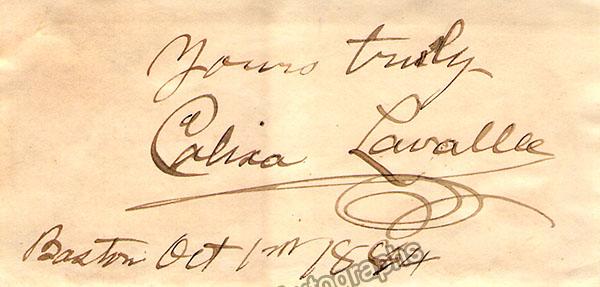 Yours truly
Calixa Lavallee
Boston Oct 1st 1884